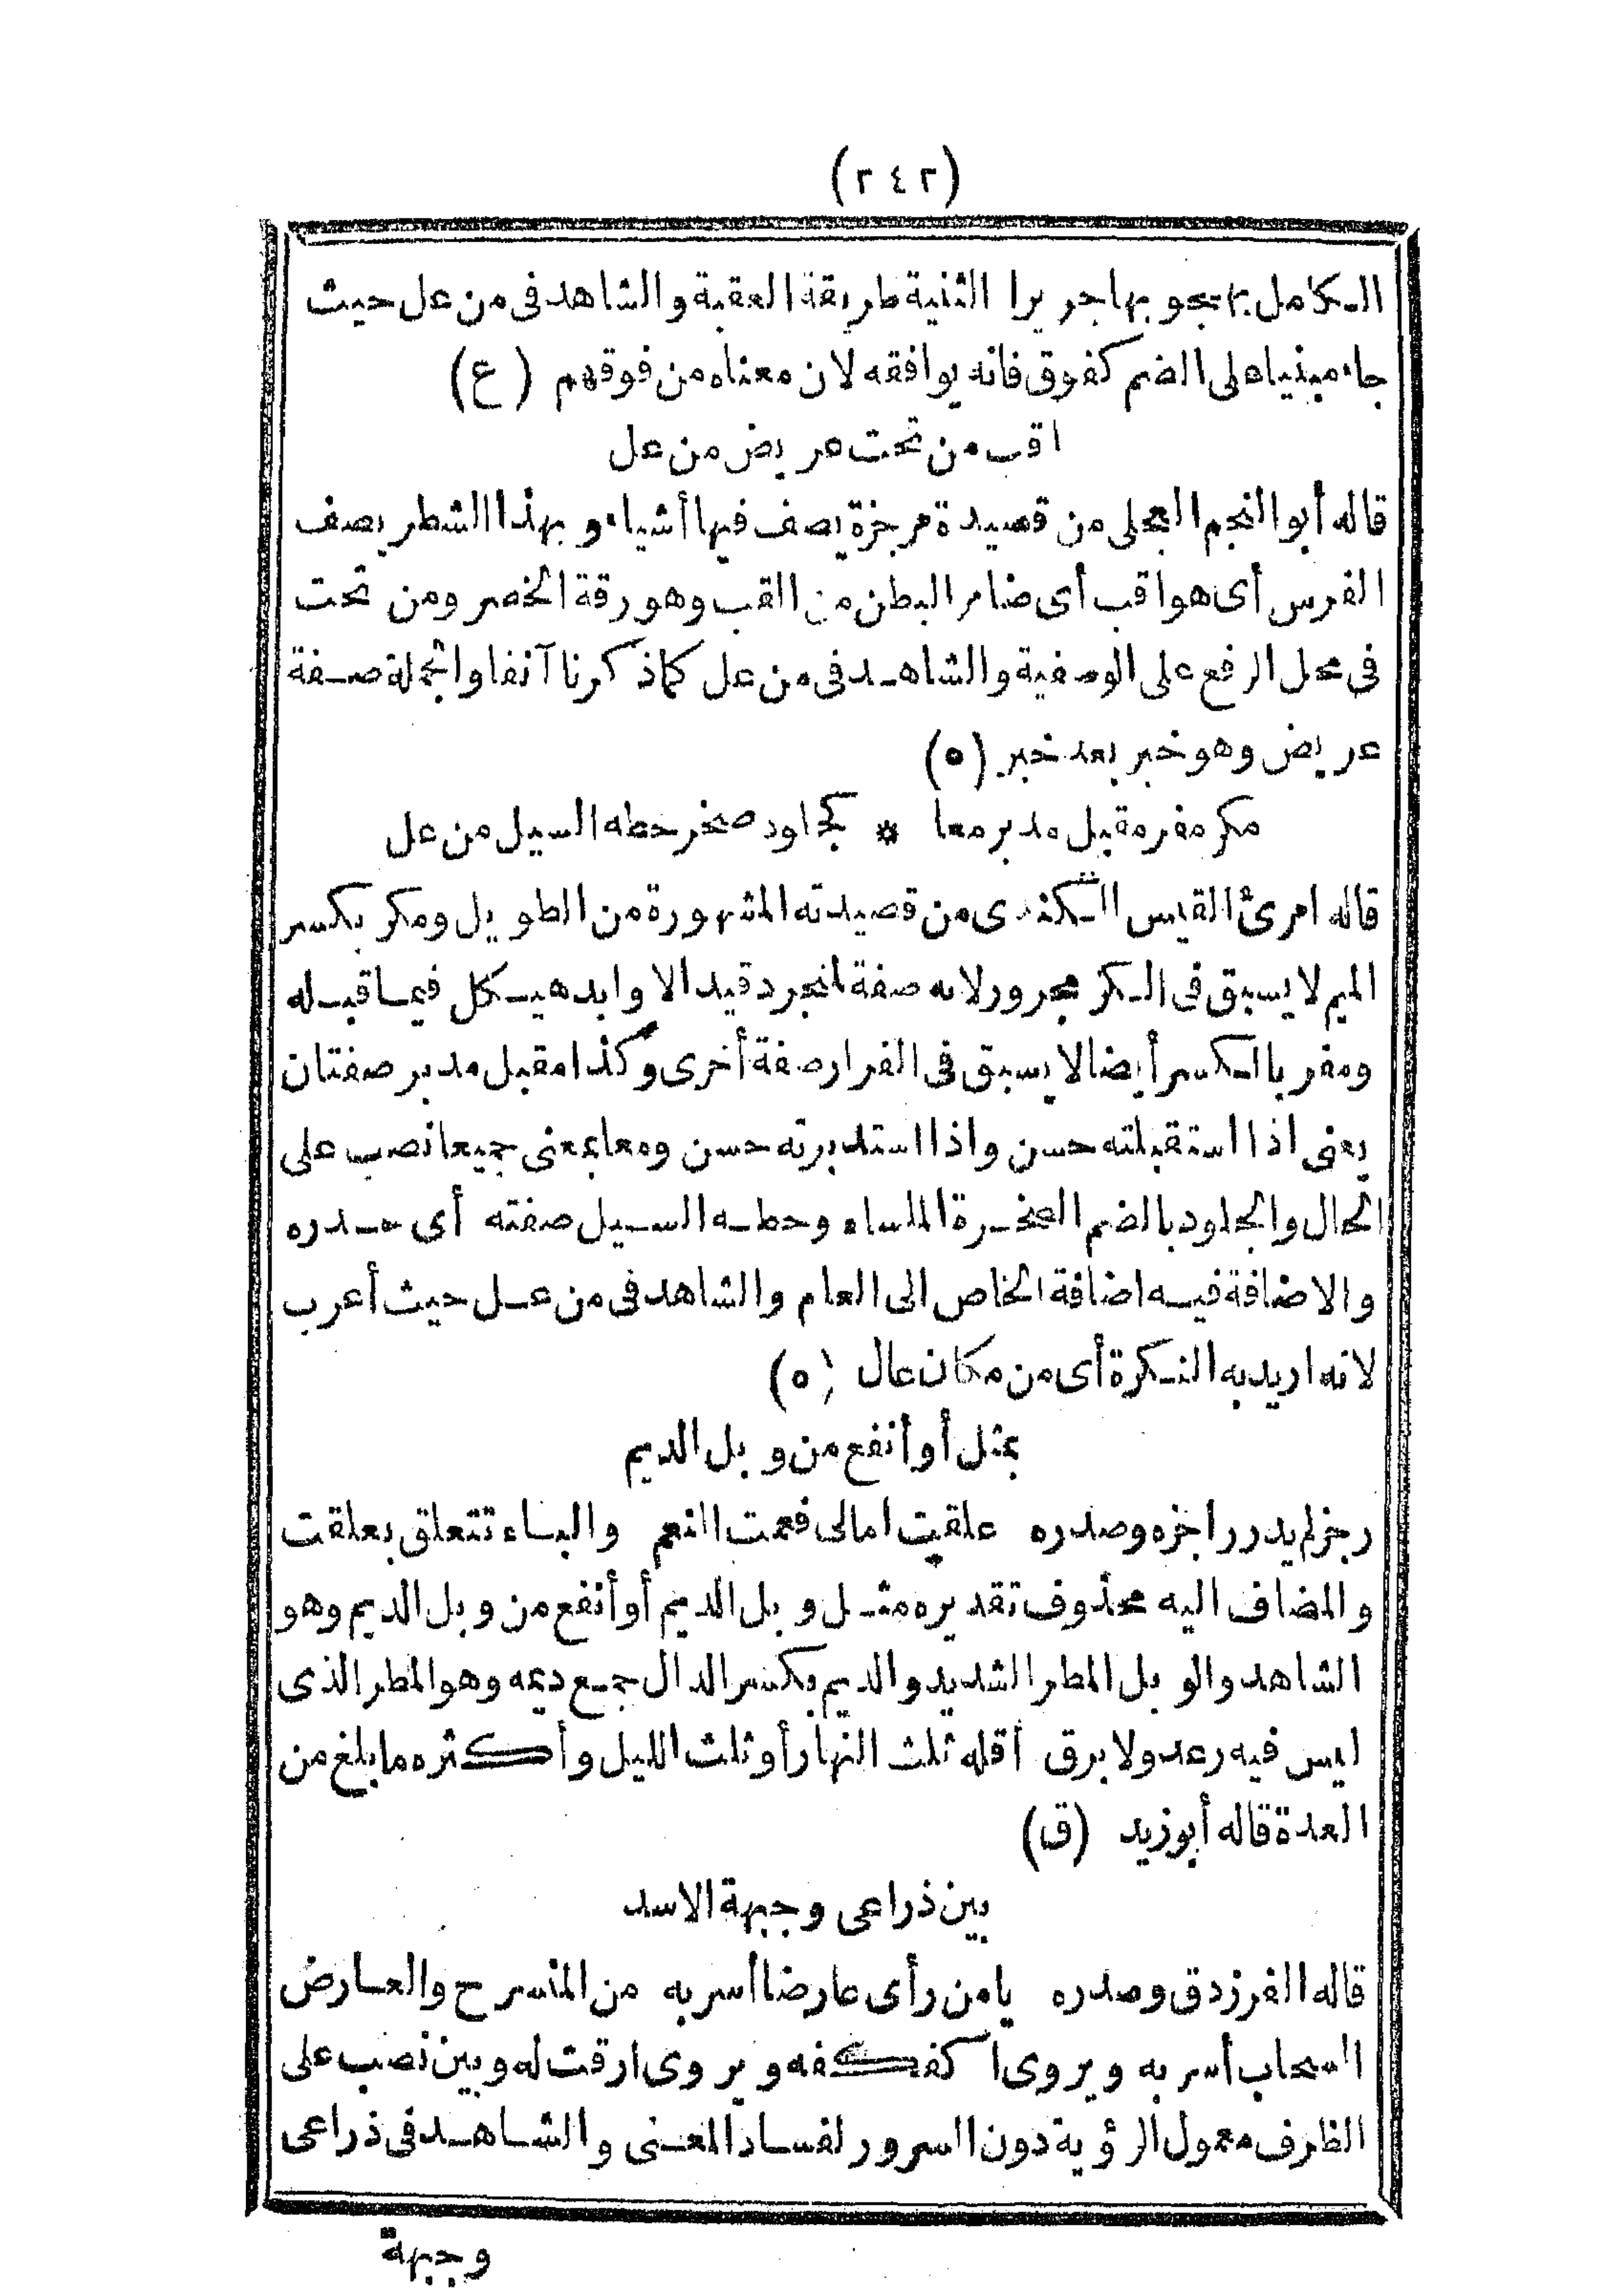 (٢٤٢)
الكامل يهجو بها جريرا الثنية طريقة العقبة والشاهد فى من عل حيث
جاء مبنيا على الضم كفوق فانه يوافقه لان معناه من فوقهم (ع)
اقب من تحت عريض من عل
قاله أبو النجم العجلى من قصيدة مرجزة يصف فيها أشياء وبهذا الشطر يصف
الفرس أى هو اقب أى ضامر البطن من القب وهو رقة الخصر ومن تحت
فى محل الرفع على الوصفية والشاهد فى من عل كما ذكرنا آنفا والجملة صفة
عريض وهو خبر بعد خبر (ه)
مكر مفر مقبل مدبر معا * كجلود صخر حطه السيل من عل
قاله امرئ القيس الكندى من قصيدته المشهورة من الطويل ومكر بكسر
الميم لا يسبق فى الكر مجرور لانه صفة لمنجرد قيد الاوابد هيكل فيما قبله
ومفر بالكسر أيضا لا يسبق فى الفرار صفة أخرى وكذا مقبل مدبر صفتان
يعنى اذا استقبلته حسن واذا استدبرته حسن ومعا بمعنى جميعا نصب على
الحال والجلود بالضم الصخرة الملساء وحطه السيل صفته أى حدره
والاضافة فيه اضافة الخاص الى العام والشاهد فى من عل حيث أعرب
لانه اريد به النكرة أى من مكان عال (ه)
بمثل أو أنفع من وبل الديم
رجز لم يدر راجزه وصدره علقت امالى فعمت النعم والباء تتعلق بعلقت
والمضاف اليه محذوف تقديره مثل وبل الديم أو أنفع من وبل الديم وهو
الشاهد والوبل المطر الشديد والديم بكسر الدال جمع ديمه وهو المطر الذى
ليس فيه رعد ولا برق أقله ثلث النهار أو ثلث الليل وأكثره ما بلغ من
العدة قاله أبو زيد (ق)
بين ذراعى وجبهة الاسد
قاله الفرزدق وصدره يا من رأى عارضا أسر به من المنسرح والعارض
السحاب أسر به ويروى اكفكفه ويروى ارقت له وبين نصب على
الظرف معمول الرؤية دون السرور لفساد المعنى والشاهد فى ذراعى
وجبهة